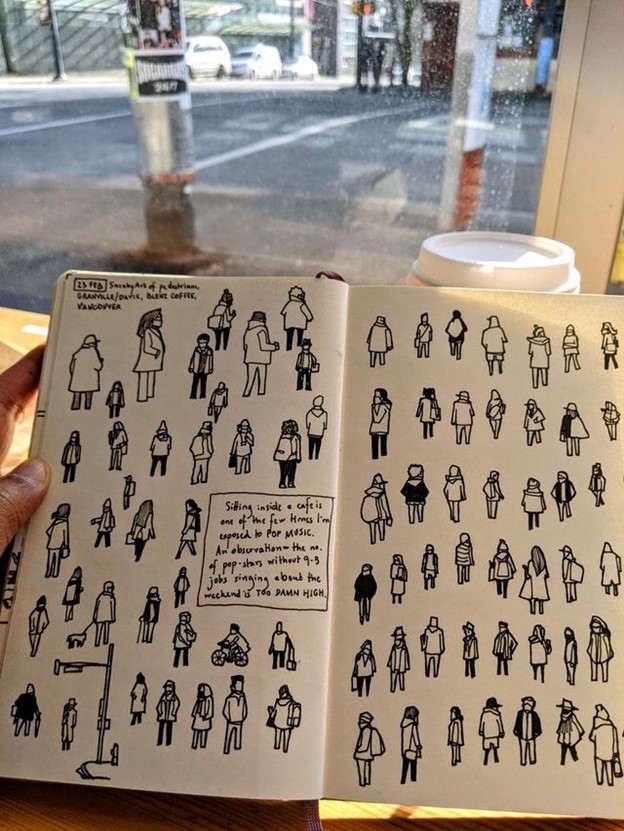 23 FEB SneakyArt of pedestrians,
GRANVILLE/DAVIE, BLENZ COFFEE,
VANCOUVER
Sitting inside a cafe is
one of the few times I'm
exposed to POP MUSIC.
An observation = the no.
of pop-stars without 9-5
jobs singing about the
weekend is TOO DAMN HIGH.